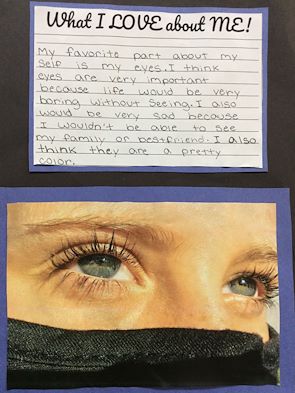 What I LOVE about ME!
My favorite part about my
self is my eyes. I think
eyes are very important
because life would be very
boring without seeing. I also
would be very sad because
I wouldn't be able to see
my family or bestfriend. I also
think they are a pretty
color.